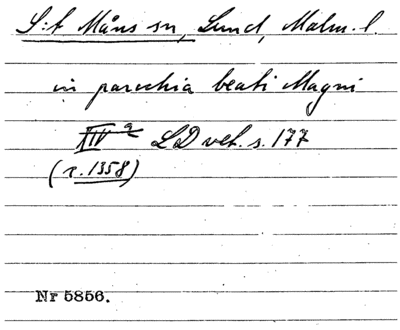 S:t Måns sn, Lund, Malm. l.
in parochia beati Magni
XIV 2 LD vet. s. 177
(r. 1358)
Nr 5856.